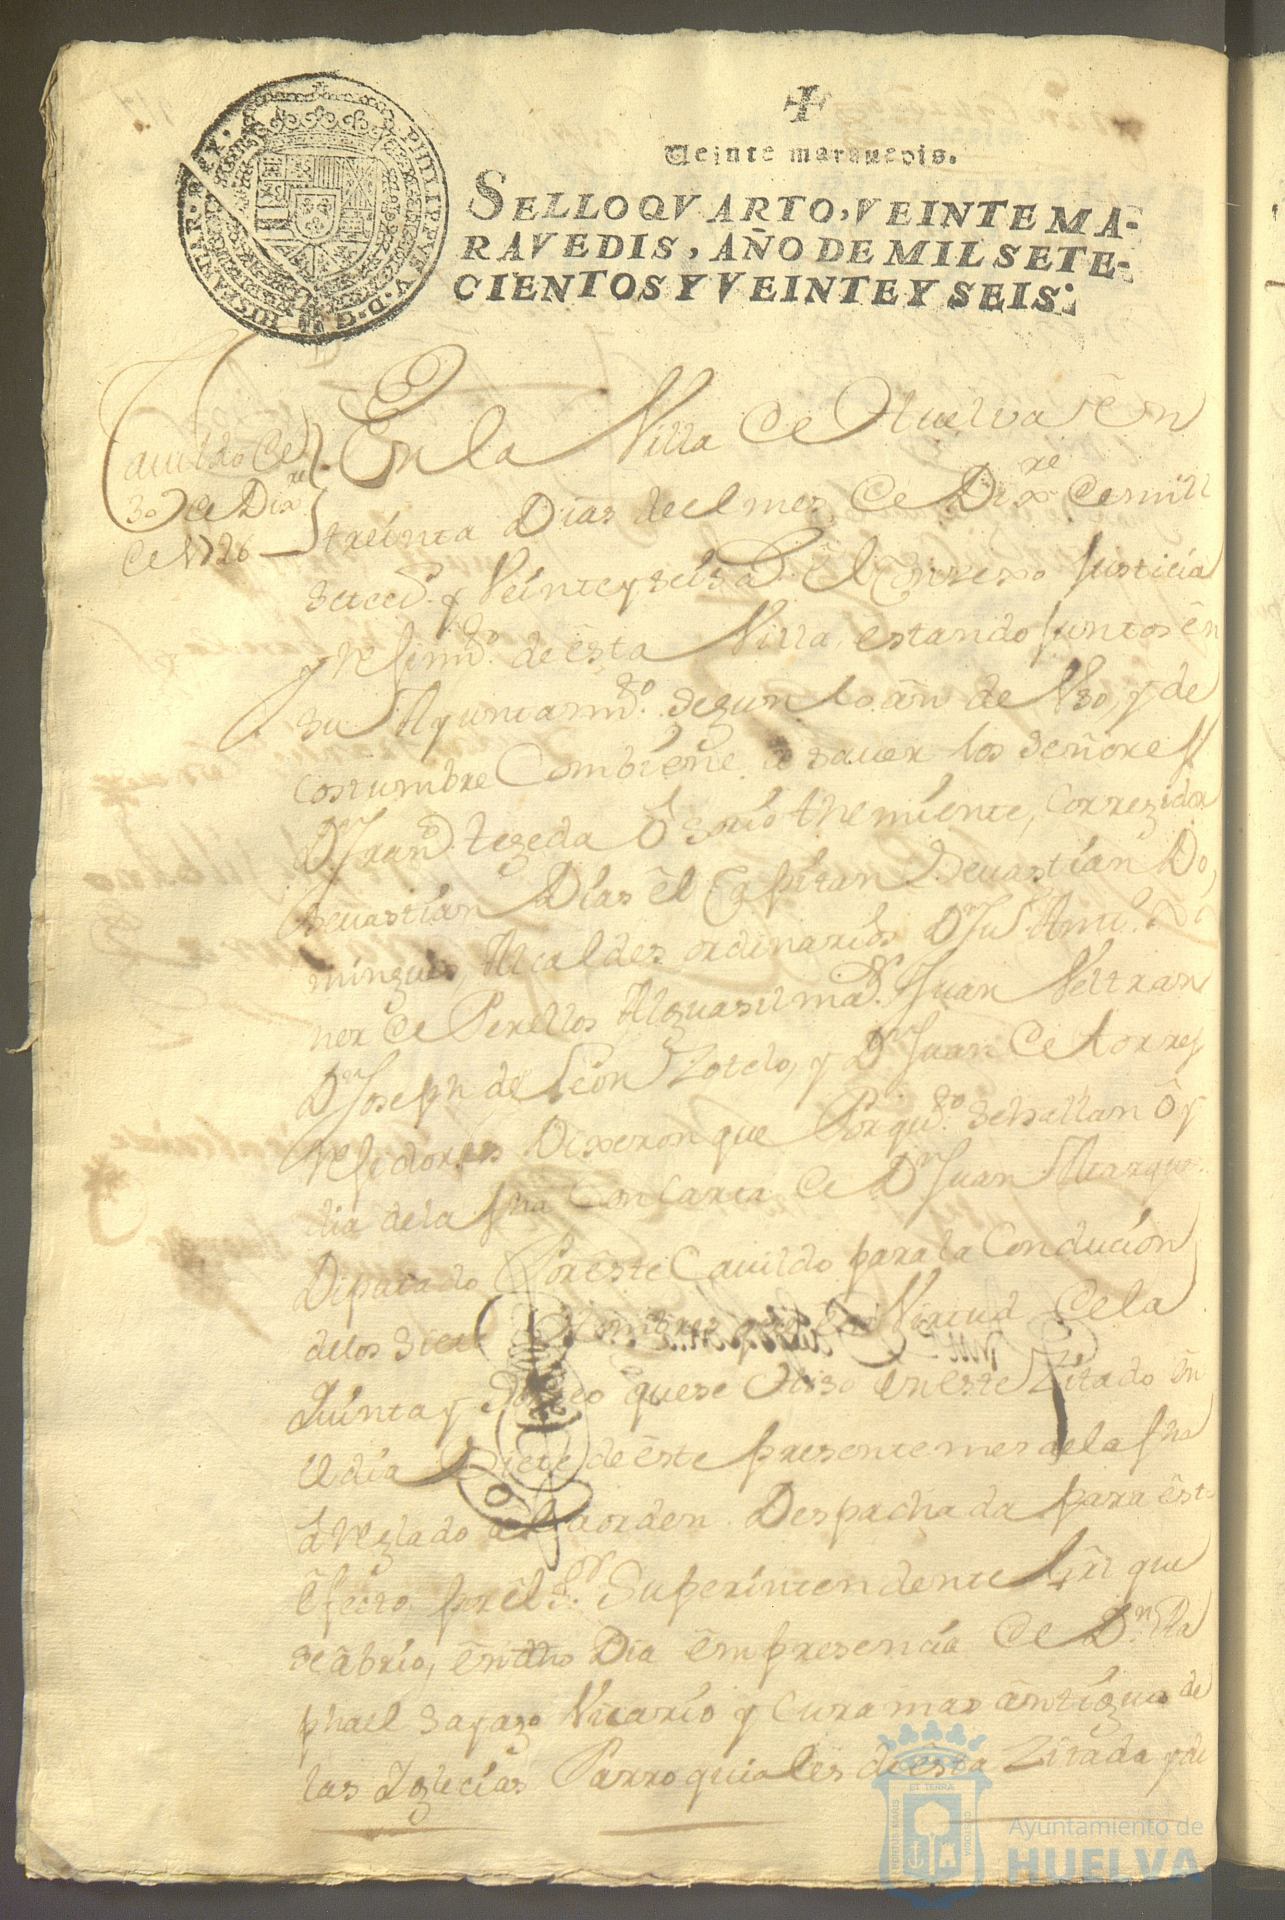 PHILIPPVS·V·D·G· HISPANIAR·REX·
Veinte marauedis.
SELLO QVARTO, VEINTE MA-
RAVEDIS, AÑO DE MIL SETE-
CIENTOS Y VEINTE Y SEIS.
Cauildo de
30 de Dixre
de 1726
En la Villa de Huelva en
treinta Dias de el mes de Dixre de mill
setecs. y Veinte y seis as. El Conxexo Justicia
y Rejimdo. de esta Villa, estando juntos en
su Ayuntamdo. segun lo an de Vso, y de
costumbre Combiene a sauer los señores
Dn Fran. tegeda Osorio theniente, Corregidor
Seuastian Dias el Capitan Seuastian Do,
minguez, Alcaldes ordinarios Dn Ju
ner de Perellos Alguasil mar. Juan Veltran
Dn Joseph de Leon Sotelo, y Dn Juan de torres
Rejidores Dixeron que Por qdo. se hallan oy
dia de la fha Con carta de Dn Juan Marquez
Diputado Por este Cauildo para la Conducion
de los siete Virtud de la
Junta y Sorteo que se Hiso en este Zitado en
el dia Siete de este presente mes de la fha
arreglado a la orden Despachada para este
efecto, por el Sr. Superintendente Grl que
se abrio, en dho Dia em presencia de Dn Ra
phael Sayago Vicario y Cura mas antiguo de
las Yglecias Parroquiales de esta Zitada y de
Ayuntamiento de
HUELVA